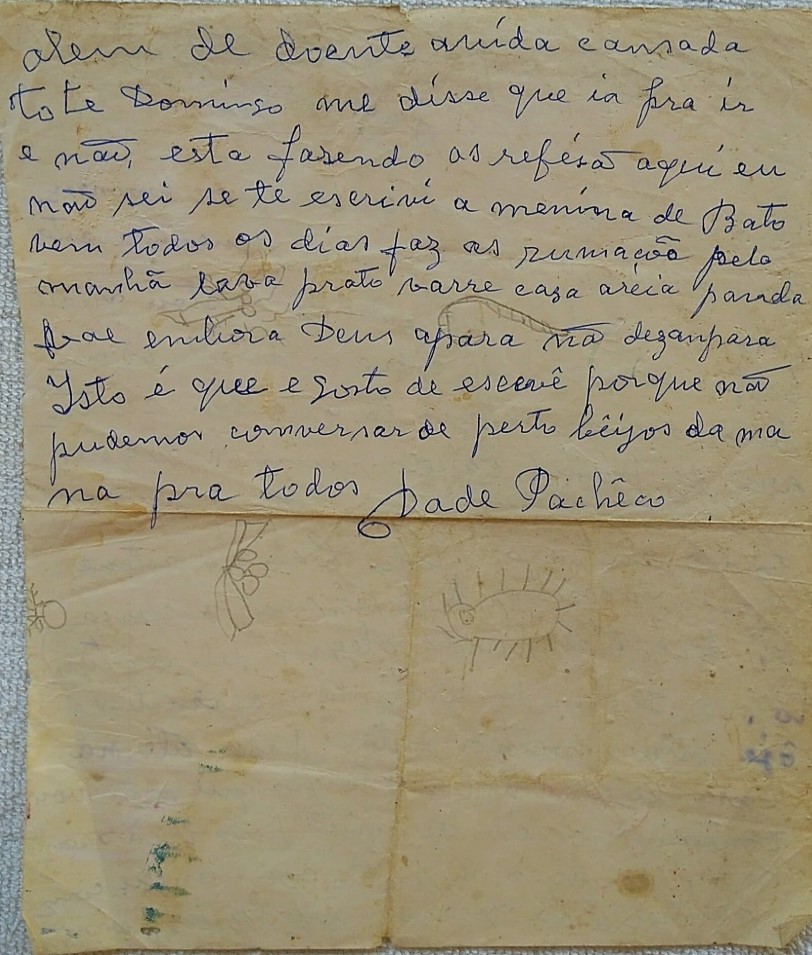 alem de doente avída cansada
tote Domingo me disse que ia pra ir
e não, esta fazendo as refésõ aquí eu
não sei se te escriví a menína de Bato
vem todos os días faz as rumação pela
manhã lava prato varre caza aréia panda
vae embora Deus apara não dezanpara
Ysto é que e gosto de escevê porque não
pudemos conversar de perto bêijos da ma
na pra todos Dade Pachêco